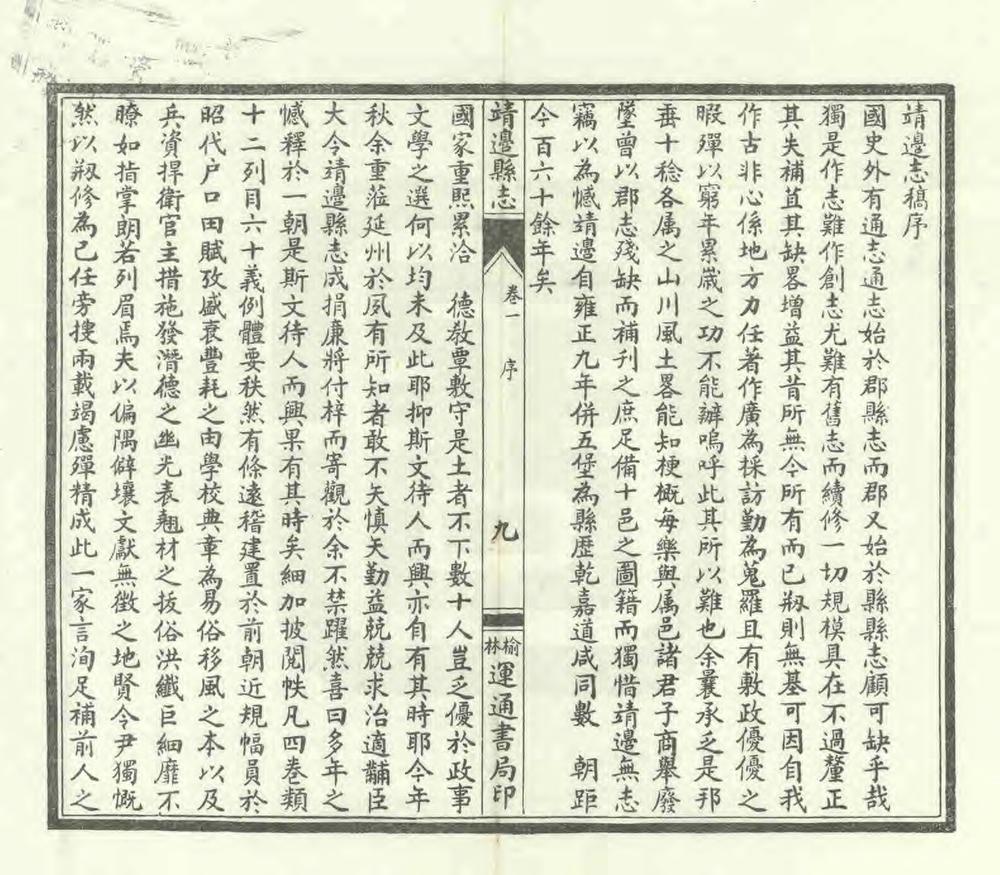 靖邊志稿序
國史外有通志通志始於郡縣志而郡又始於縣縣志顧可缺乎哉
獨是作志難作創志尤難有舊志而續修一切規模具在不過釐正
其失補苴其缺畧增益其昔所無今所有而已剏則無基可因自我
作古非心係地方力任著作廣為採訪勤為蒐羅且有敷政優優之
暇殫以窮年累嵗之功不能辦嗚呼此其所以難也余曩承乏是邦
垂十稔各属之山川風土畧能知梗慨每樂與属邑諸君子商舉廢
墜曾以郡志殘缺而補刊之庶足備十邑之圖籍而獨惜靖邊無志
竊以為憾靖邊自雍正九年併五堡為縣歷乾嘉道咸同數 朝距
今百六十餘年矣
靖邊縣志
卷一
序
九
榆林
運通書局印
國家重熙累洽 德敎覃敷守是土者不下數十人豈乏優於政事
文學之選何以均未及此耶抑斯文待人而興亦自有其時耶今年
秋余重蒞延州於夙有所知者敢不矢慎矢勤益兢兢求治適黼臣
大令靖邊縣志成捐廉將付梓而寄觀於余不禁躍然喜曰多年之
憾釋於一朝是斯文待人而興果有其時矣細加披閱帙凡四卷類
十二列目六十義例體要秩然有條遠稽建置於前朝近規幅員於
昭代户口田賦攷盛衰豐耗之由學校典章為易俗移風之本以及
兵資捍衛官主措施發潛德之幽光表翹材之拔俗洪纖巨細靡不
瞭如指掌朗若列眉焉夫以偏隅僻壤文獻無徵之地賢令尹獨慨
然以剏修為己任旁搜兩載竭慮殫精成此一家言洵足補前人之